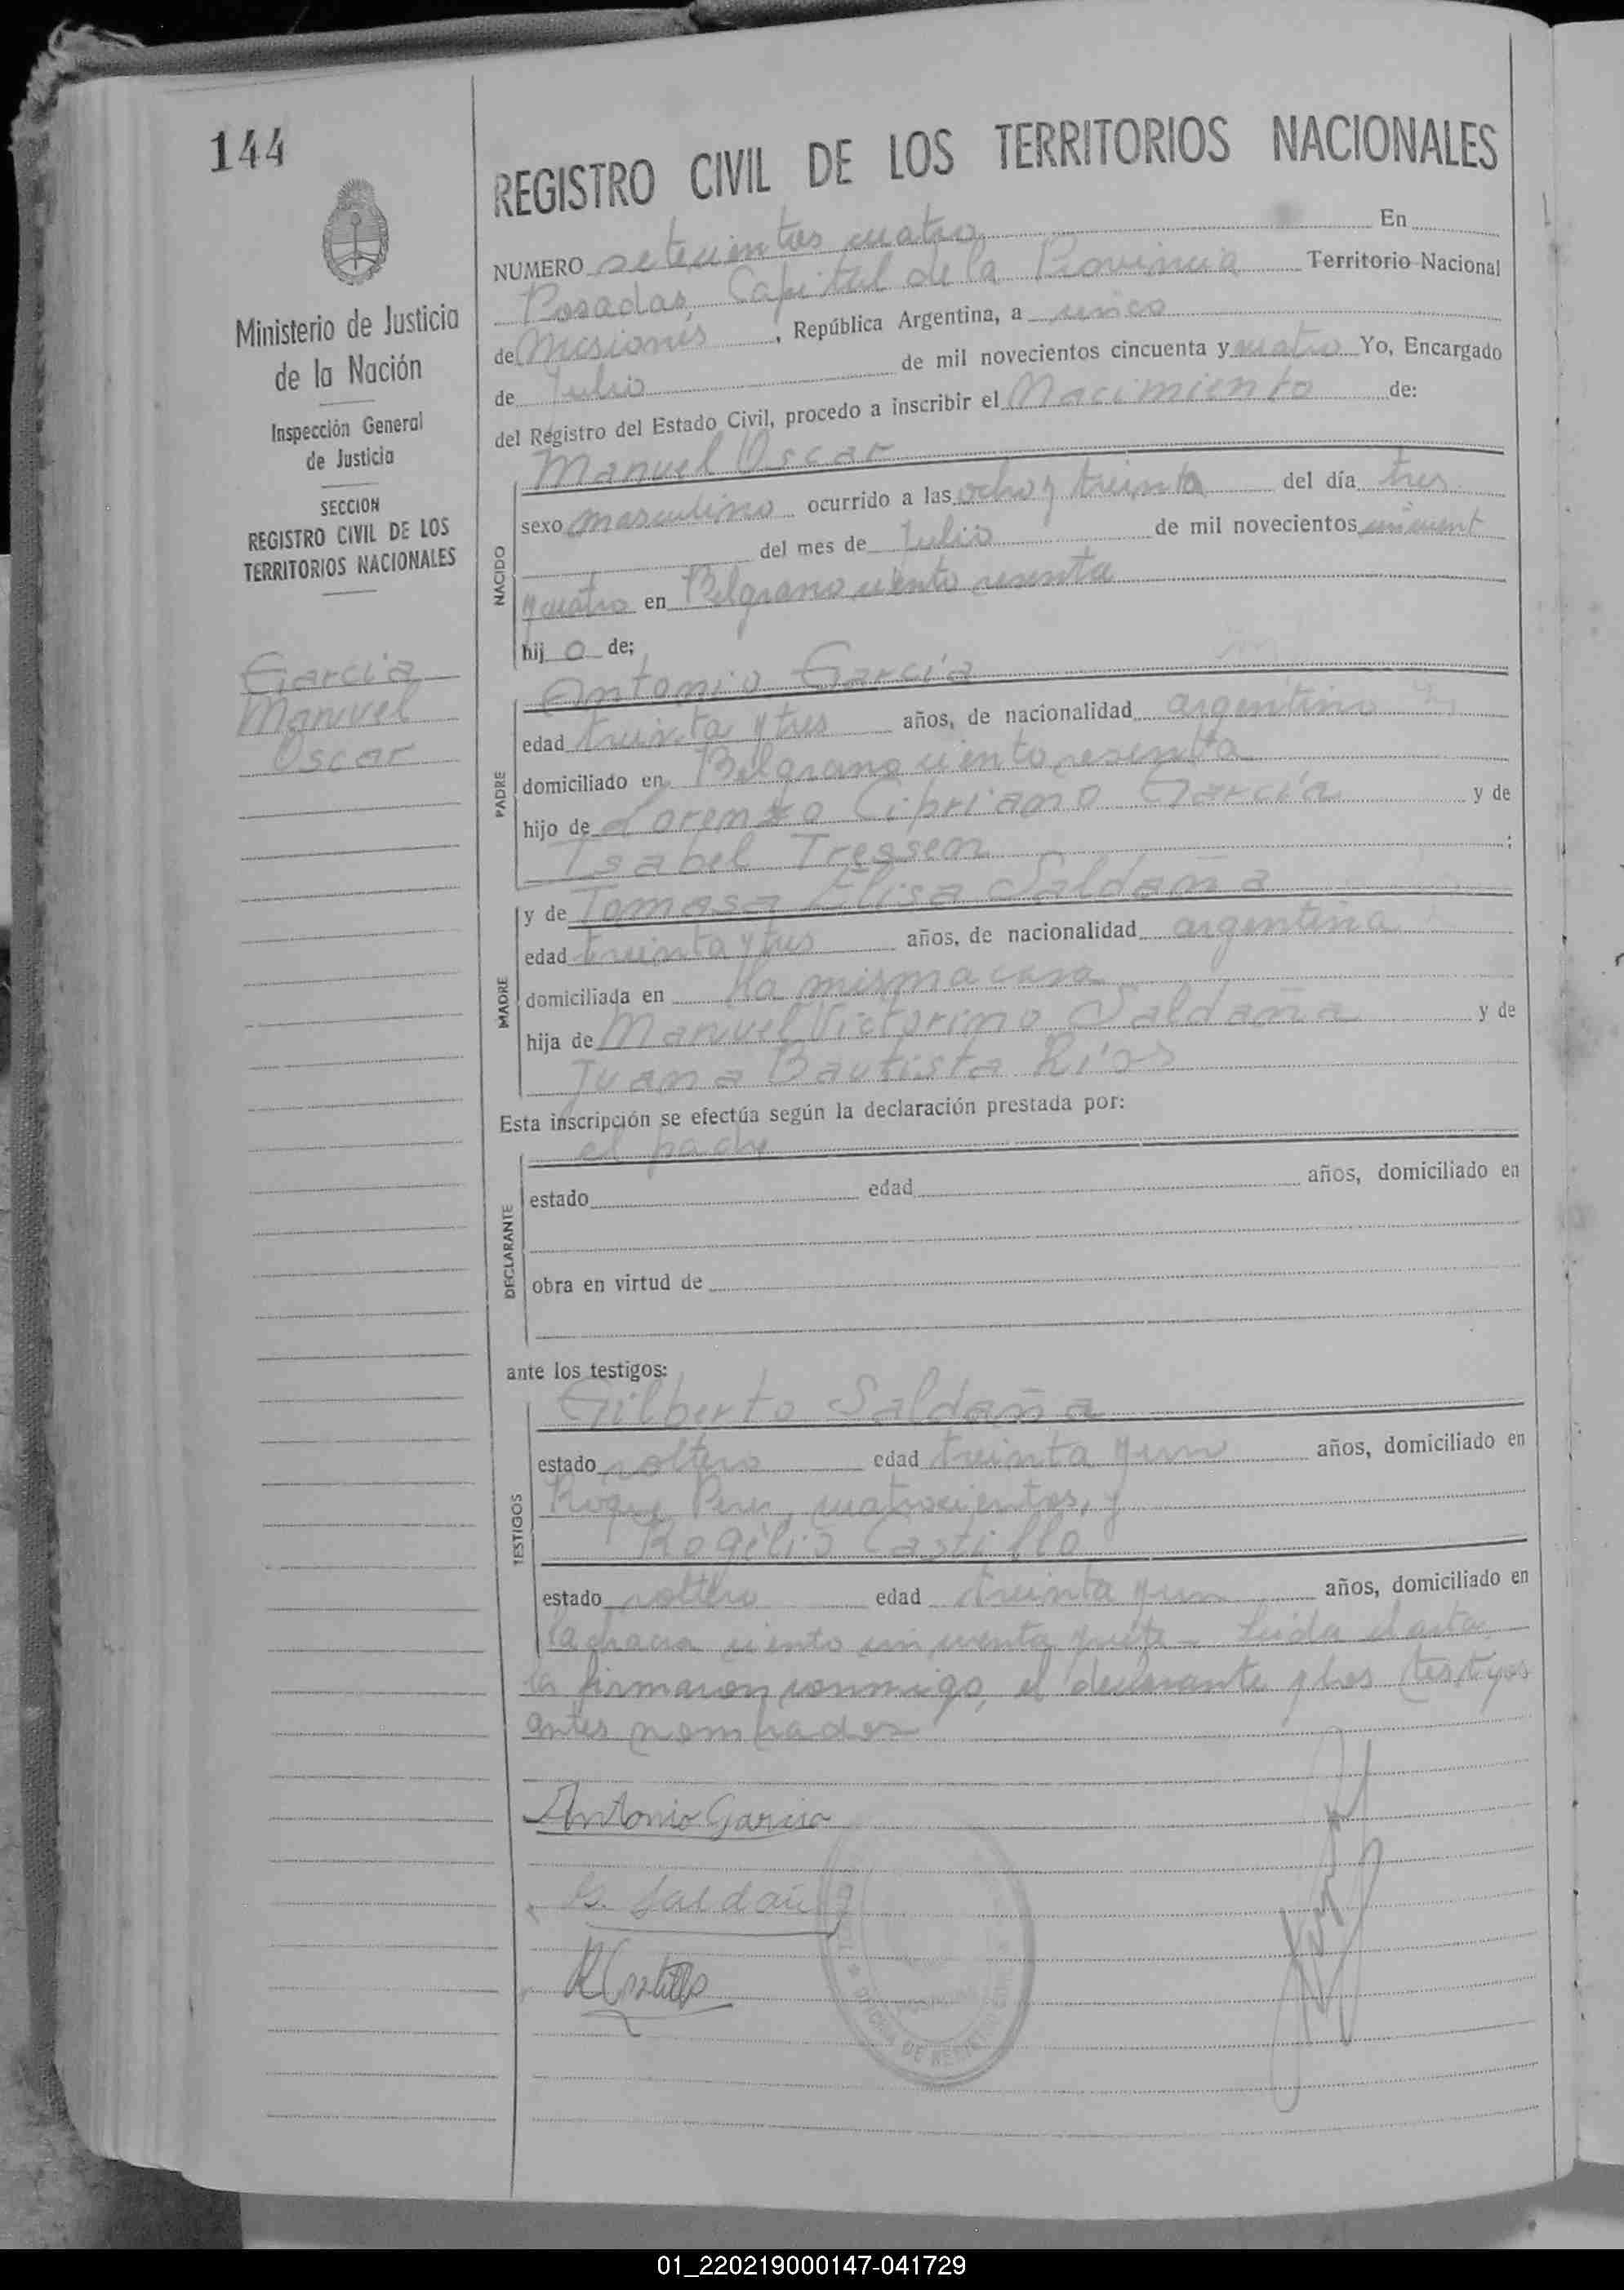 144
Ministerio de Justicia
de la Nación
Inspección General
de Justicia
SECCION
REGISTRO CIVIL DE LOS
TERRITORIOS NACIONALES
Garcia
Manuel
Oscar
REGISTRO CIVIL DE LOS TERRITORIOS NACIONALES
NUMERO setecientos cuatro En
Posadas, Capital de la Provincia Territorio Nacional
de Misiones, República Argentina, a cinco
de Julio de mil novecientos cincuenta y cuatro Yo, Encargado
del Registro del Estado Civil, procedo a inscribir el Nacimiento de:
Manuel Oscar
NACIDO
sexo masculino ocurrido a las ocho y treinta del día tres
del mes de Julio de mil novecientos cincuent
y cuatro en Belgrano ciento sesenta
hij o de;
Antonio García
PADRE
edad treinta y tres años, de nacionalidad argentino
domiciliado en Belgrano ciento sesenta
hijo de Lorenzo Cipriano García y de
Isabel Tressen;
MADRE
y de Tomasa Elisa Saldaña
edad treinta y tres años, de nacionalidad argentina
domiciliada en la misma casa
hija de Manuel Victorino Saldaña y de
Juana Bautista Ríos
Esta inscripción se efectúa según la declaración prestada por:
el padre
DECLARANTE
estado edad años, domiciliado en
obra en virtud de
ante los testigos:
Gilberto Saldaña
TESTIGOS
estado soltero edad treinta y un años, domiciliado en
Roque Perez cuatrocientos, y
Rogelio Castillo
estado soltero edad treinta y un años, domiciliado en
ciento cincuenta y siete - Leida el acta,
la firmaron conmigo, el declarante y los testigos
antes nombrados
Antonio Garcia
G. Saldaña
RCastillo
01_220219000147-041729